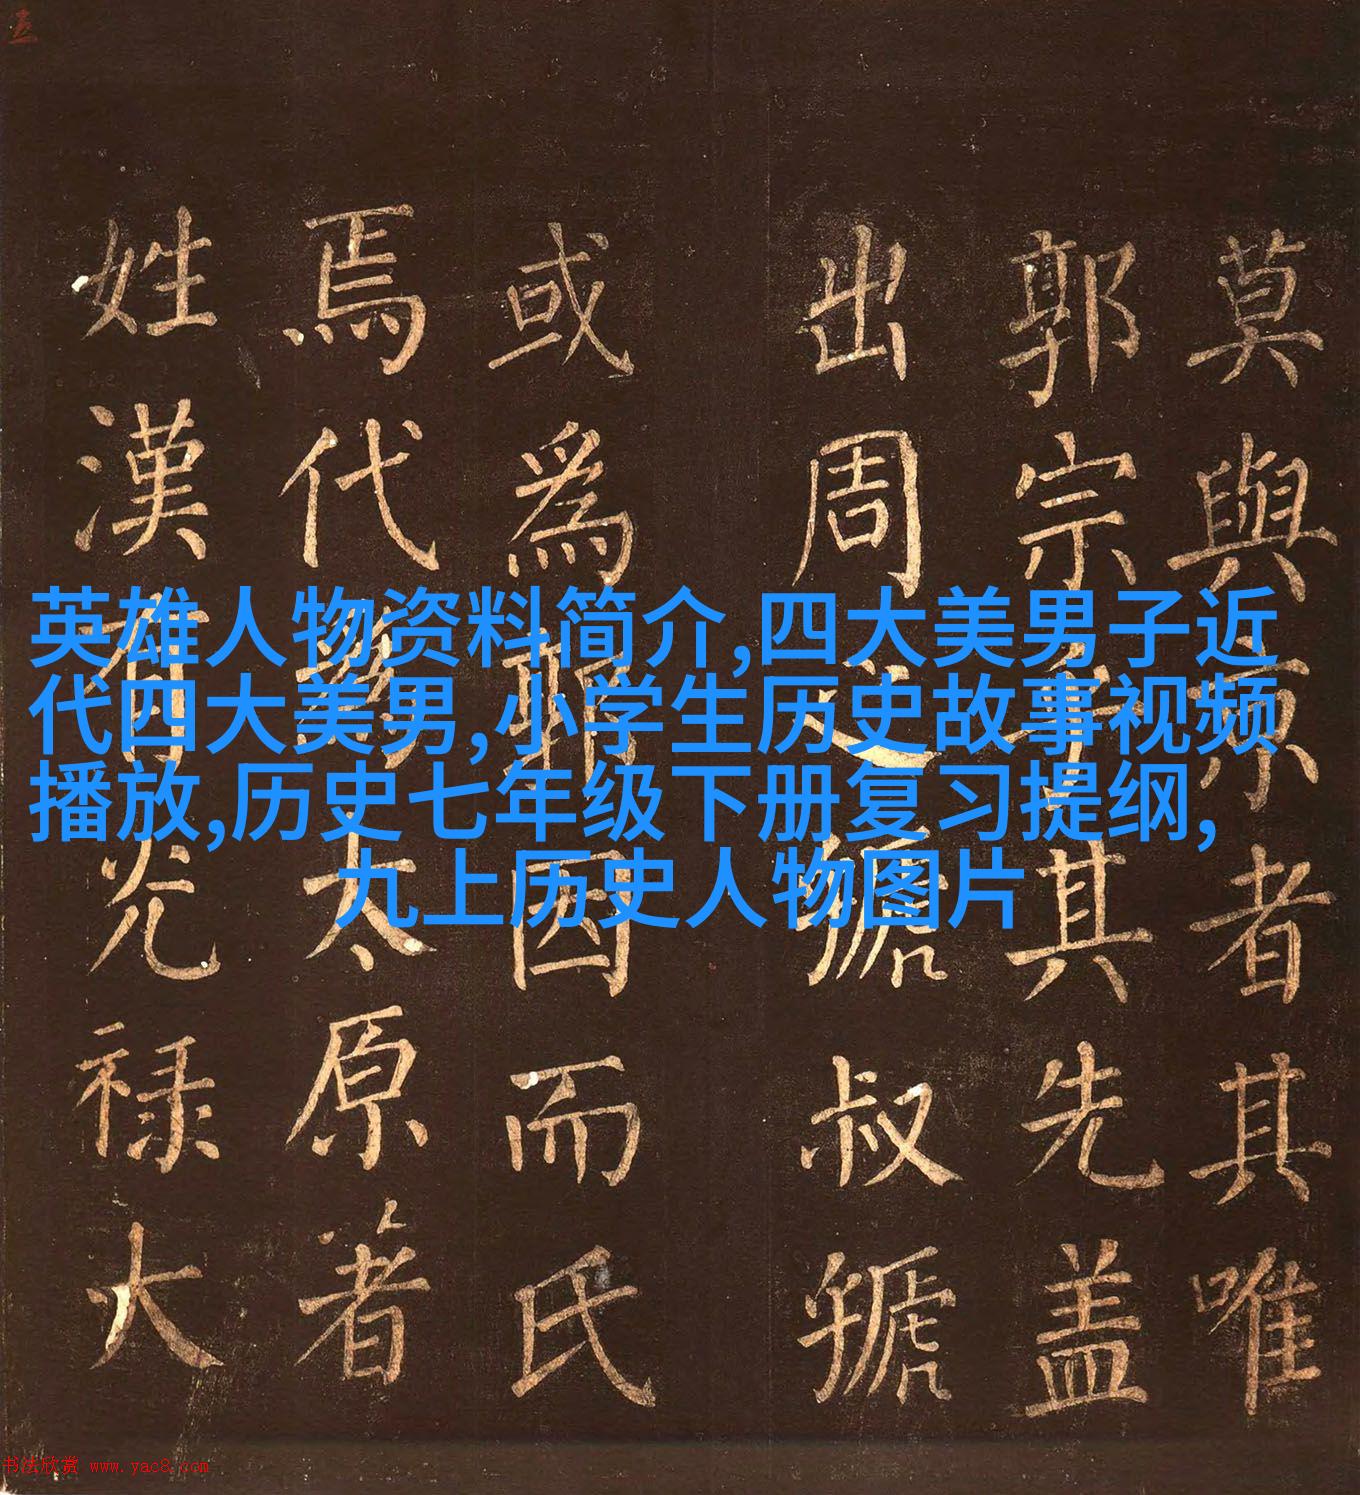 英雄人物资料简介,四大美男子近
代四大美男,小学生历史故事视频
播放,历史七年级下册复习提纲,
九上历史人物图片
莫與京者其唯
郭宗乎其先盖
出周之虢叔虢
或為郭因而氏
焉代為太原著
姓漢有光禄大
书法欣赏 www.yac8.com